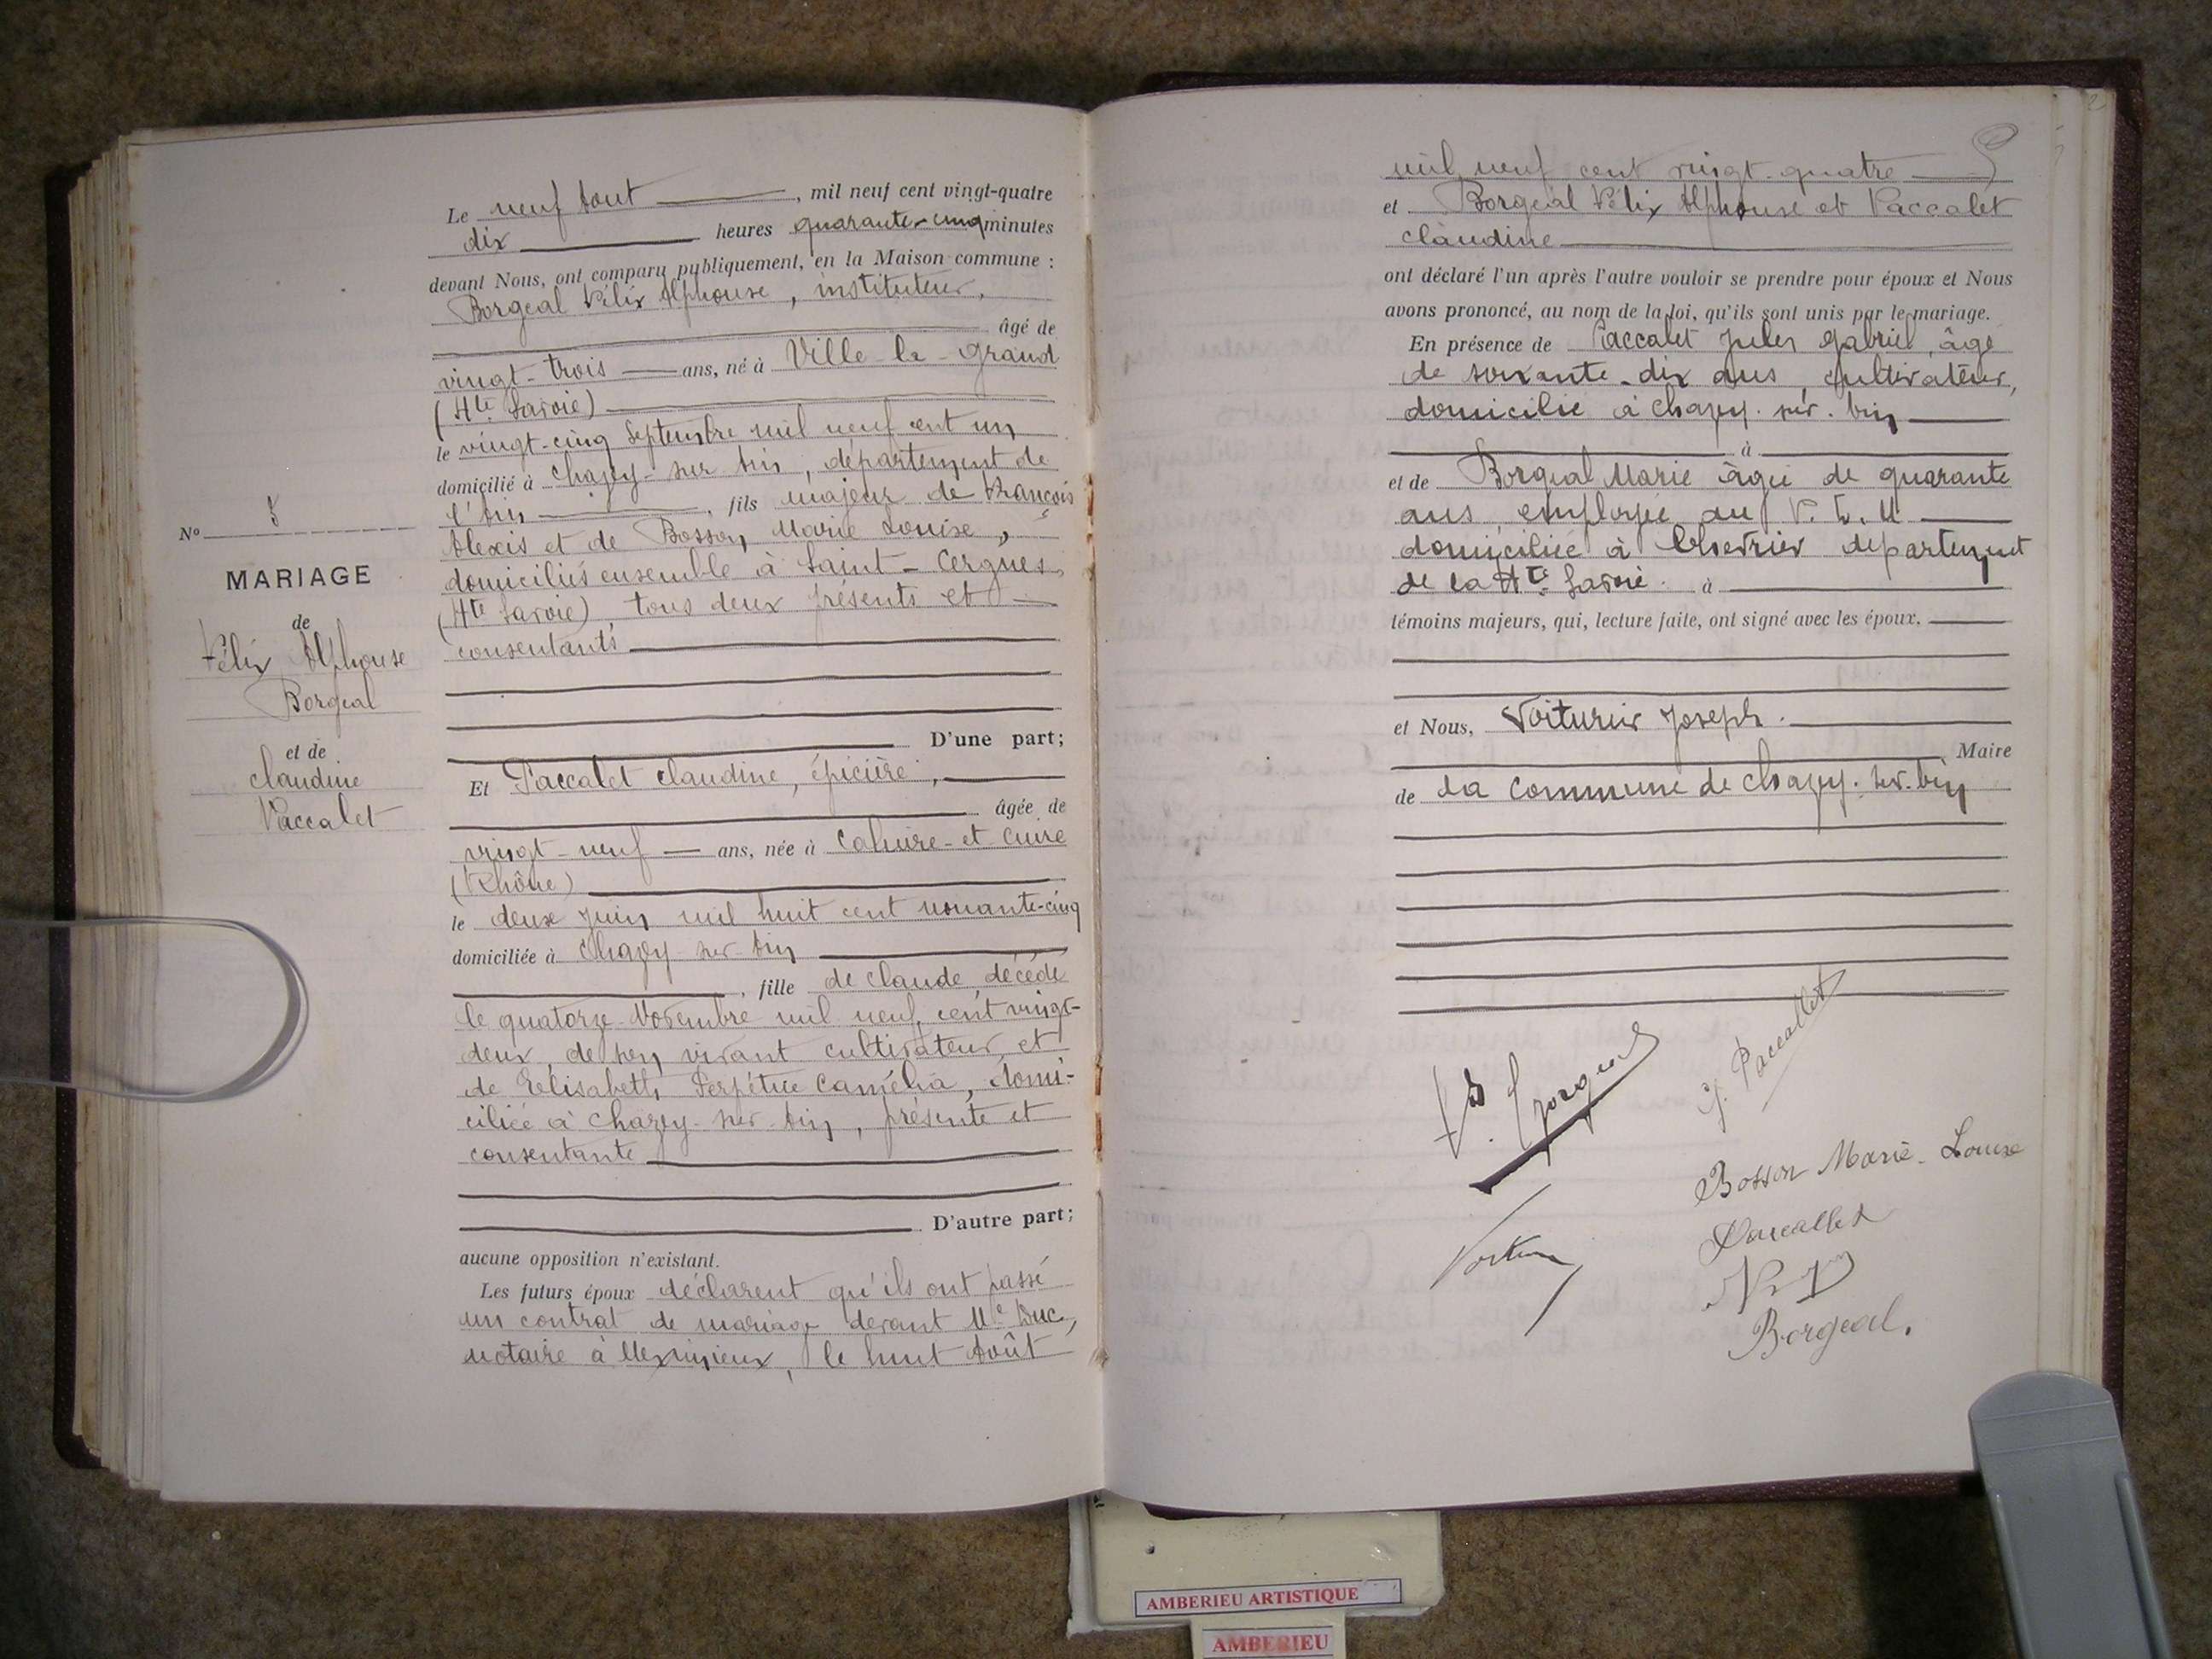 Nº 5
MARIAGE
de
Félix Alphonse
Borgeal
et de
Claudine
Paccalet
Le neuf Août, mil neuf cent vingt-quatre
dix heures quarante-cinq minutes
devant Nous, ont comparu publiquement, en la Maison commune :
Borgeal Félix Alphonse, instituteur,
âgé de
vingt-trois ans, né à Ville-la-Grand
(Hte Savoie)
le vingt-cinq Septembre mil neuf cent un
domicilié à Chazey-sur-Ain, département de
l'Ain, fils majeur de François
Alexis et de Bosson Marie Louise,
domiciliés ensemble à Saint-Cergues
(Hte Savoie), tous deux présents et
consentants
D'une part;
Et Paccalet Claudine, épicière,
âgée de
vingt-neuf ans, née à Caluire-et-Cuire
(Rhône)
le deux Juin mil huit cent nonante-cinq
domiciliée à Chazey-sur-Ain
, fille de Claude, décédé
le quatorze Novembre mil neuf cent vingt-
deux, de son vivant cultivateur, et
de Elisabeth Perpétue Camélia, domi-
ciliée à Chazey-sur-Ain, présente et
consentante
D'autre part;
aucune opposition n'existant.
Les futurs époux déclarent qu'ils ont passé
un contrat de mariage devant Me Duc,
notaire à Meximieux, le huit Août
mil neuf cent vingt-quatre
et Borgeal Félix Alphonse et Paccalet
Claudine
ont déclaré l'un après l'autre vouloir se prendre pour époux et Nous
avons prononcé, au nom de la loi, qu'ils sont unis par le mariage.
En présence de Paccalet Jules Gabriel, âgé
de soixante-dix ans, cultivateur,
domicilié à Chazey-sur-Ain
à
et de Borgeal Marie âgée de quarante
ans, employée au P. L. M
domiciliée à Chevrier département
de la Hte Savoie. à
témoins majeurs, qui, lecture faite, ont signé avec les époux.
et Nous, Voiturier Joseph.
Maire
de la Commune de Chazey-sur-Ain
J. Paccallet
Bosson Marie-Louise
Paccallet
Borgeal.
AMBERIEU ARTISTIQUE
AMBERIEU